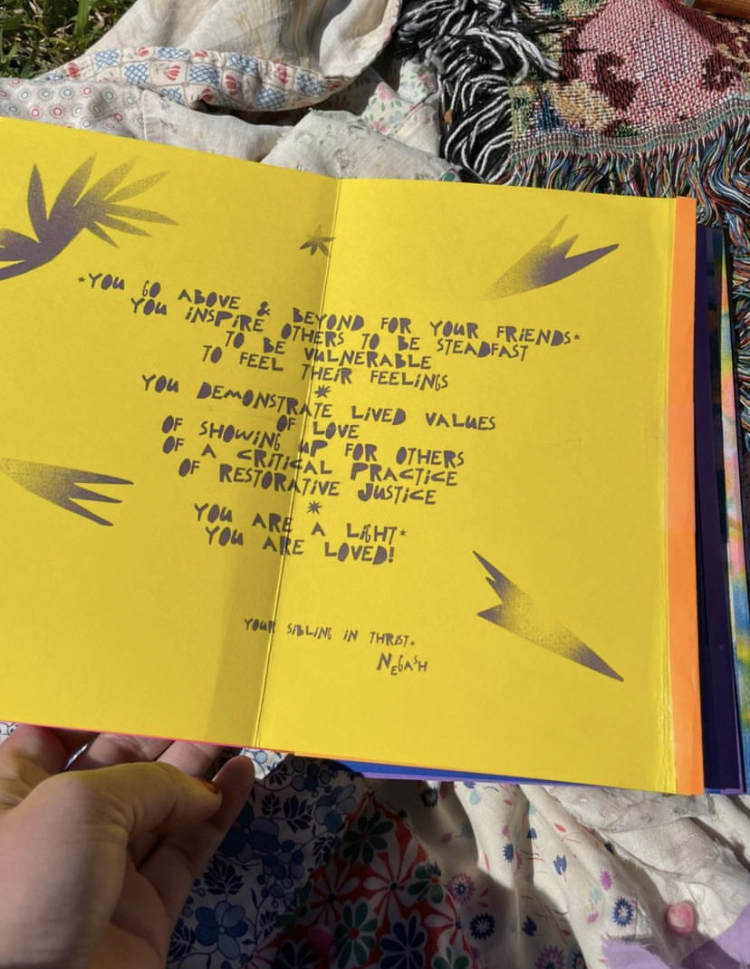 *YOU GO ABOVE & BEYOND FOR YOUR FRIENDS*
YOU INSPIRE OTHERS TO BE STEADFAST
TO BE VULNERABLE
TO FEEL THEIR FEELINGS
*
YOU DEMONSTRATE LIVED VALUES
OF LOVE
OF SHOWING UP FOR OTHERS
OF A CRITICAL PRACTICE
OF RESTORATIVE JUSTICE
*
YOU ARE A LIGHT*
YOU ARE LOVED!
YOUR SIBLING IN THRIST.
NEGASH